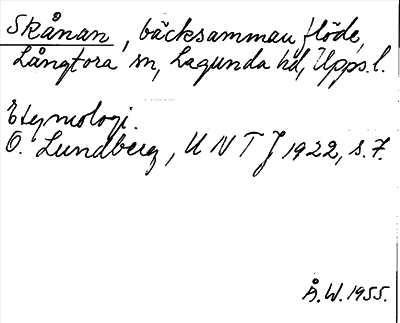 Skånan, bäcksammanflöde,
Långtora sn, Lagunda hd, Upps. l.
Etymologi.
O. Lundberg, UNTJ 1922, s. 7.
Å.W. 1955.